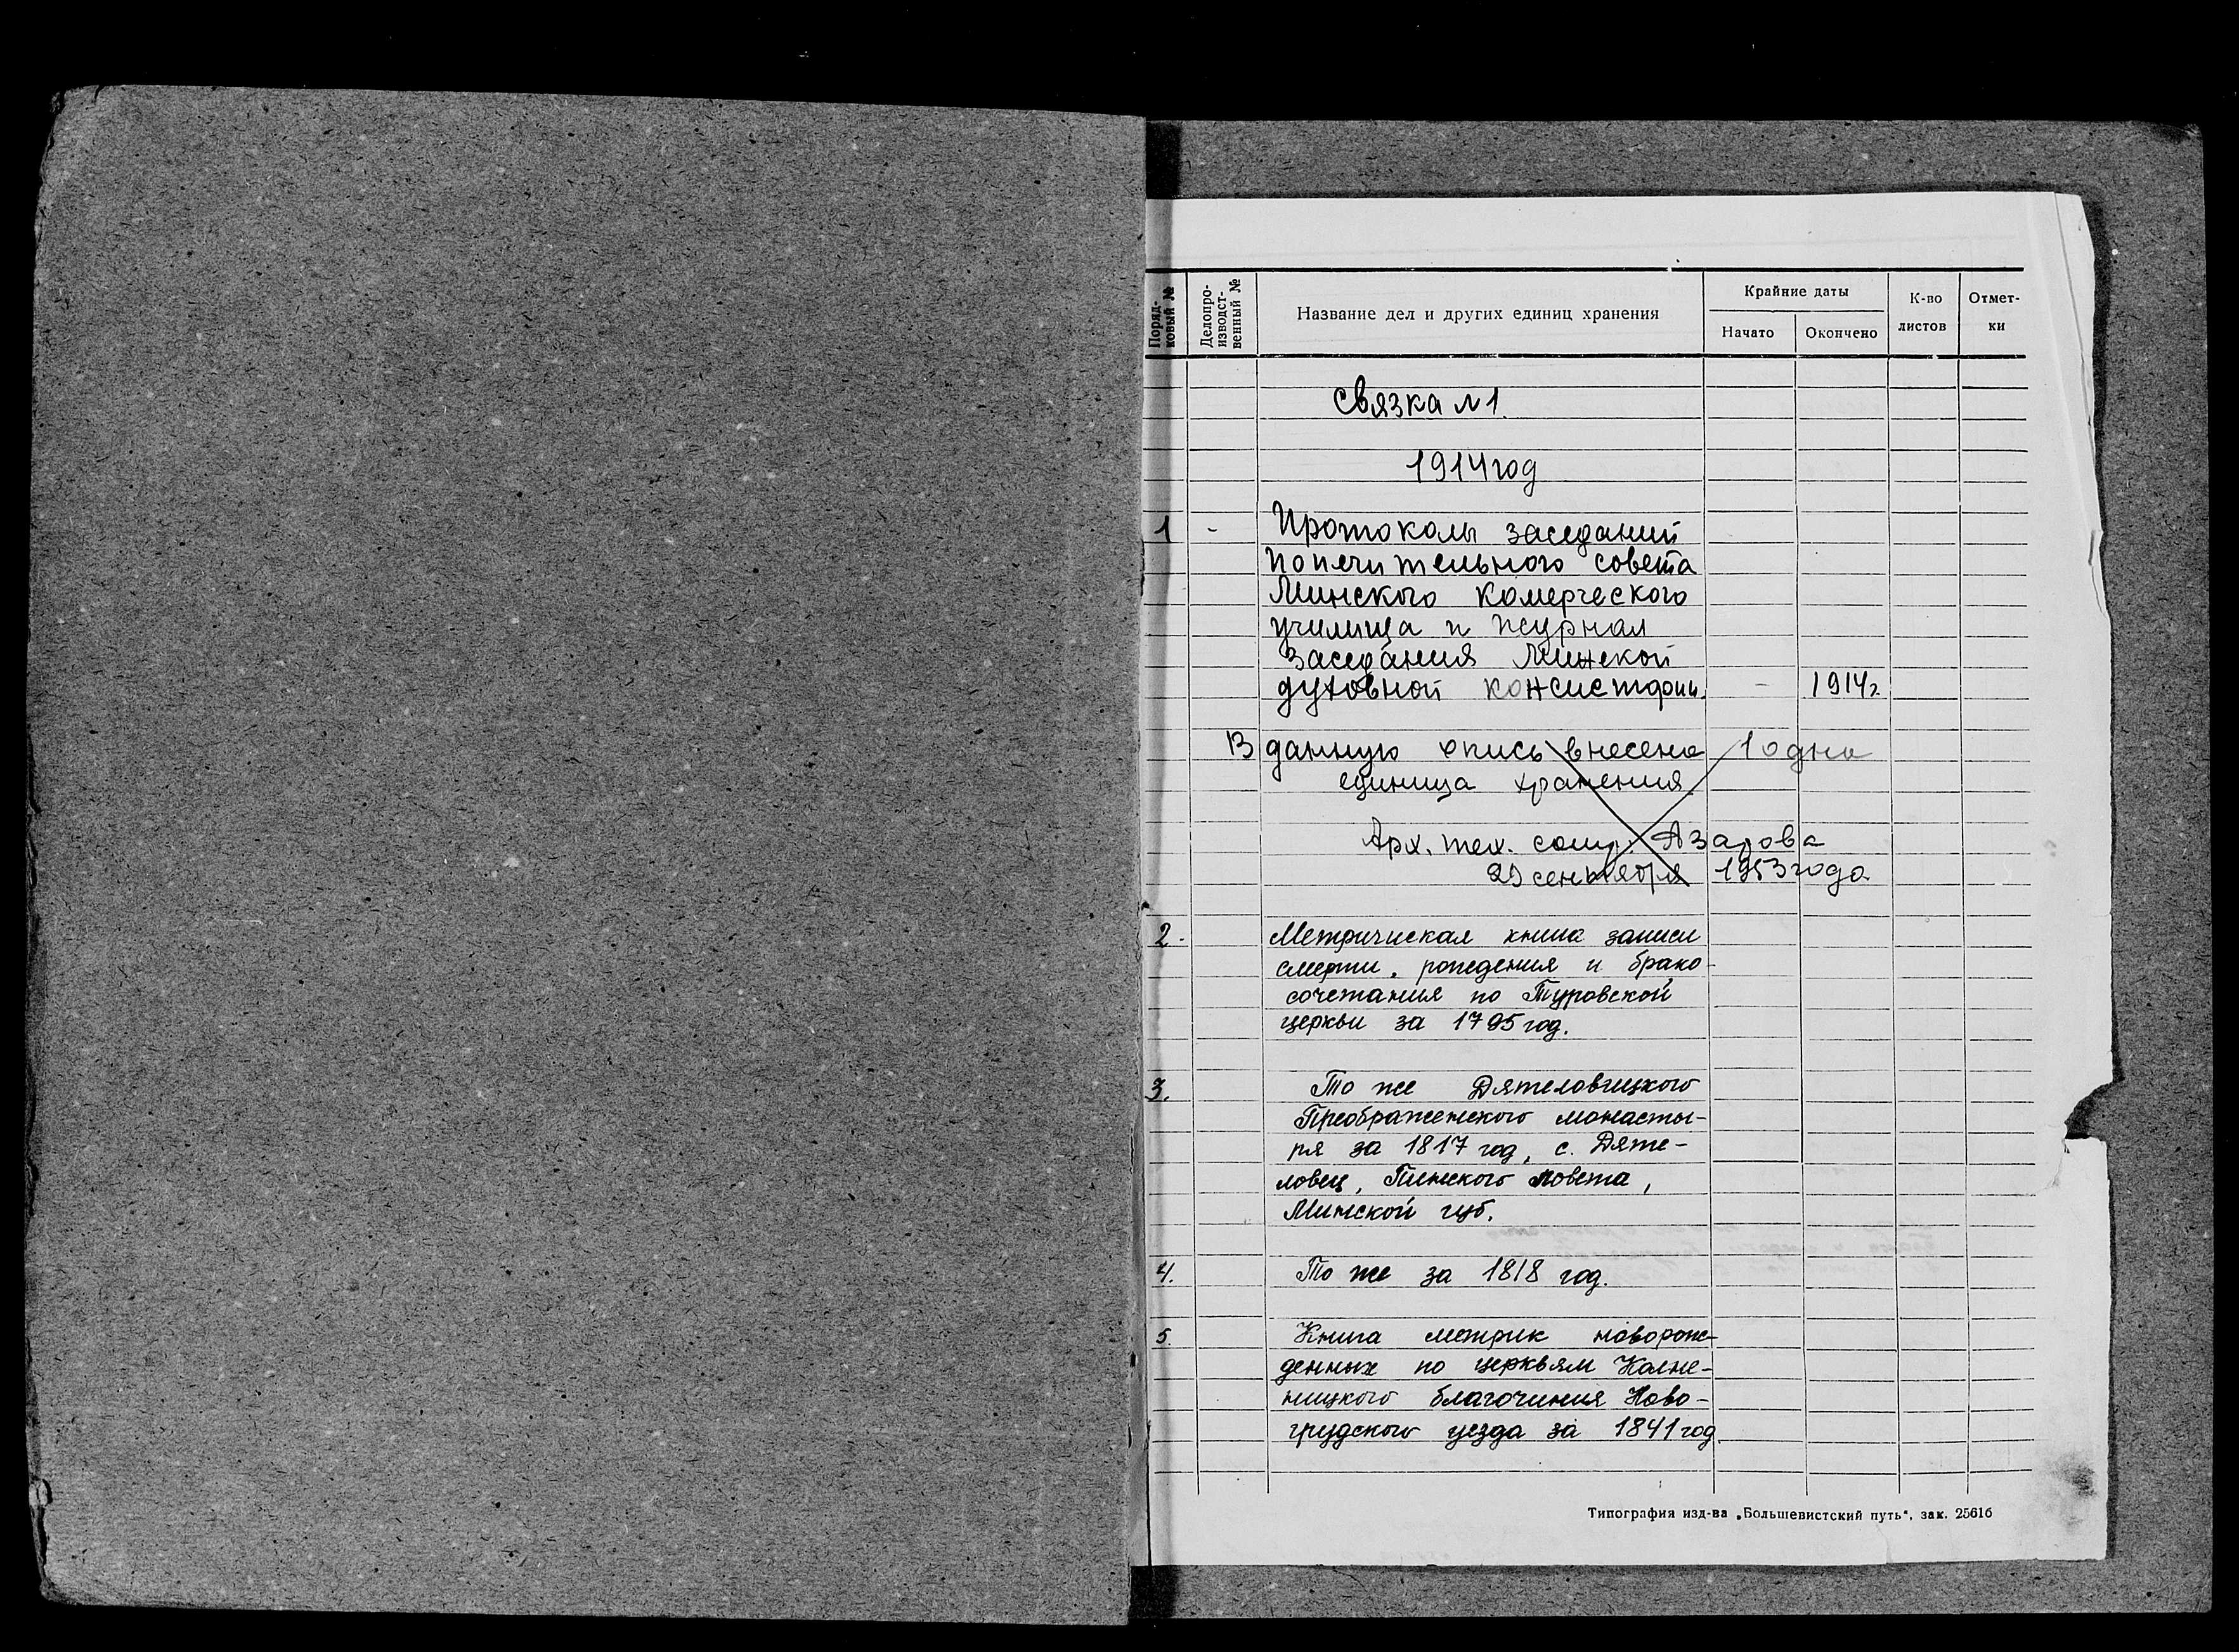 Поряд-
ковый №
Делопро-
изводст-
венный №
Название дел и других единиц хранения
Крайние даты
Начато
Окончено
К-во
листов
Отмет-
ки
Связка №1.
1914 год
1 - Протоколы заседаний
попечительного совета
Минского комерческого
училища и журнал
заседания Минской
духовной консистории. - 1914г.
В данную опись внесена 1 одна
единица хранения
Арх. тех. сотр. Азарова
сентября 1953 года
2. Метрическая книга записи
смерти, рождения и брако-
сочетания по Туровской
церкви за 1795 год.
3. То же Дятеловицкого
Преображенского монасты-
ря за 1817 год, с. Дяте-
ловец, Пинского повета,
Минской губ.
4. То же за 1818 год.
5. Книга метрик новорож-
денных по церквям
ницкого благочиния Ново-
грудского уезда за 1841 год.
Типография изд-ва „Большевистский путь“, зак. 25616